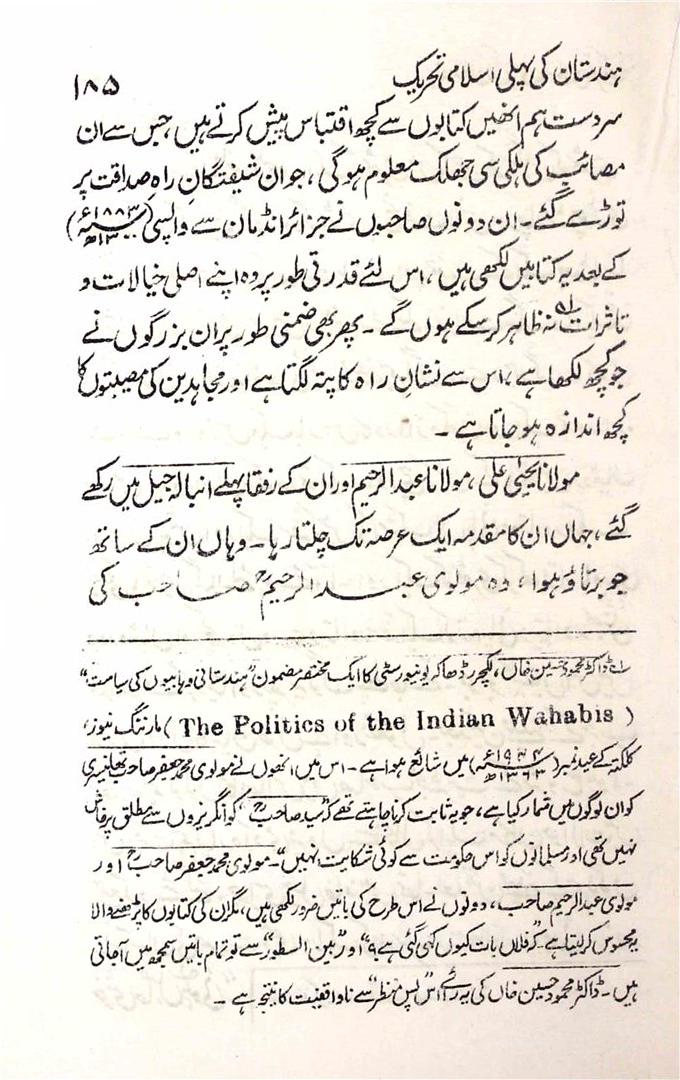 ہندستان کی پہلی اسلامی تحریک ۱۸۵
سردست ہم انھیں کتابوں سے کچھ اقتباس پیش کرتے ہیں، جس سے ان
مصائب کی ہلکی سی جھلک معلوم ہوگی، جو ان شیفتگانِ راہِ صداقت پر
توڑے گئے۔ ان دونوں صاحبوں نے جزائر انڈمان سے واپسی (۱۸۸۳ء
کے بعد یہ کتابیں لکھی ہیں، اس لئے قدرتی طور پر وہ اپنے اصلی خیالات و
تاثرات نہ ظاہر کر سکے ہوں گے۔ پھر بھی ضمنی طور پر ان بزرگوں نے
جو کچھ لکھا ہے، اس سے نشانِ راہ کا پتہ لگتا ہے اور مجاہدین کی مصیبتوں کا
کچھ اندازہ ہو جاتا ہے۔
مولانا یحییٰ علی، مولانا عبدالرحیم اور ان کے رفقا پہلے انبالہ جیل میں رکھے
گئے، جہاں ان کا مقدمہ ایک عرصہ تک چلتا رہا۔ وہاں ان کے ساتھ
جو برتاؤ ہوا، وہ مولوی عبدالرحیمؒ صاحب کی
۱؎ ڈاکٹر محمود حسین خاں، لکچرر ڈھاکہ یونیورسٹی کا ایک مختصر مضمون "ہندستانی وہابیوں کی سیاست"
(The Politics of the Indian Wahabis) مارننگ نیوز،
کلکتہ کے عید نمبر (۱۹۴۴ء ۱۳۶۳ھ) میں شائع ہوا ہے۔ اس میں انھوں نے مولوی محمد جعفر صاحب تھانیسری
کو ان لوگوں میں شمار کیا ہے، جو یہ ثابت کرنا چاہتے تھے کہ "سید صاحبؒ کو انگریزوں سے مطلق پرخاش
نہیں تھی اور مسلمانوں کو اس حکومت سے کوئی شکایت نہیں"۔ مولوی محمد جعفر صاحبؒ اور
مولوی عبدالرحیم صاحب، دونوں نے اس طرح کی باتیں ضرور لکھی ہیں، مگر ان کی کتابوں کا پڑھنے والا
یہ محسوس کر لیتا ہے کہ "فلاں بات کیوں کہی گئی ہے؟" اور "بین السطور" سے تو تمام باتیں سمجھ میں آجاتی
ہیں۔ ڈاکٹر محمود حسین خاں کی یہ رائے اس "پس منظر" سے ناواقفیت کا نتیجہ ہے۔